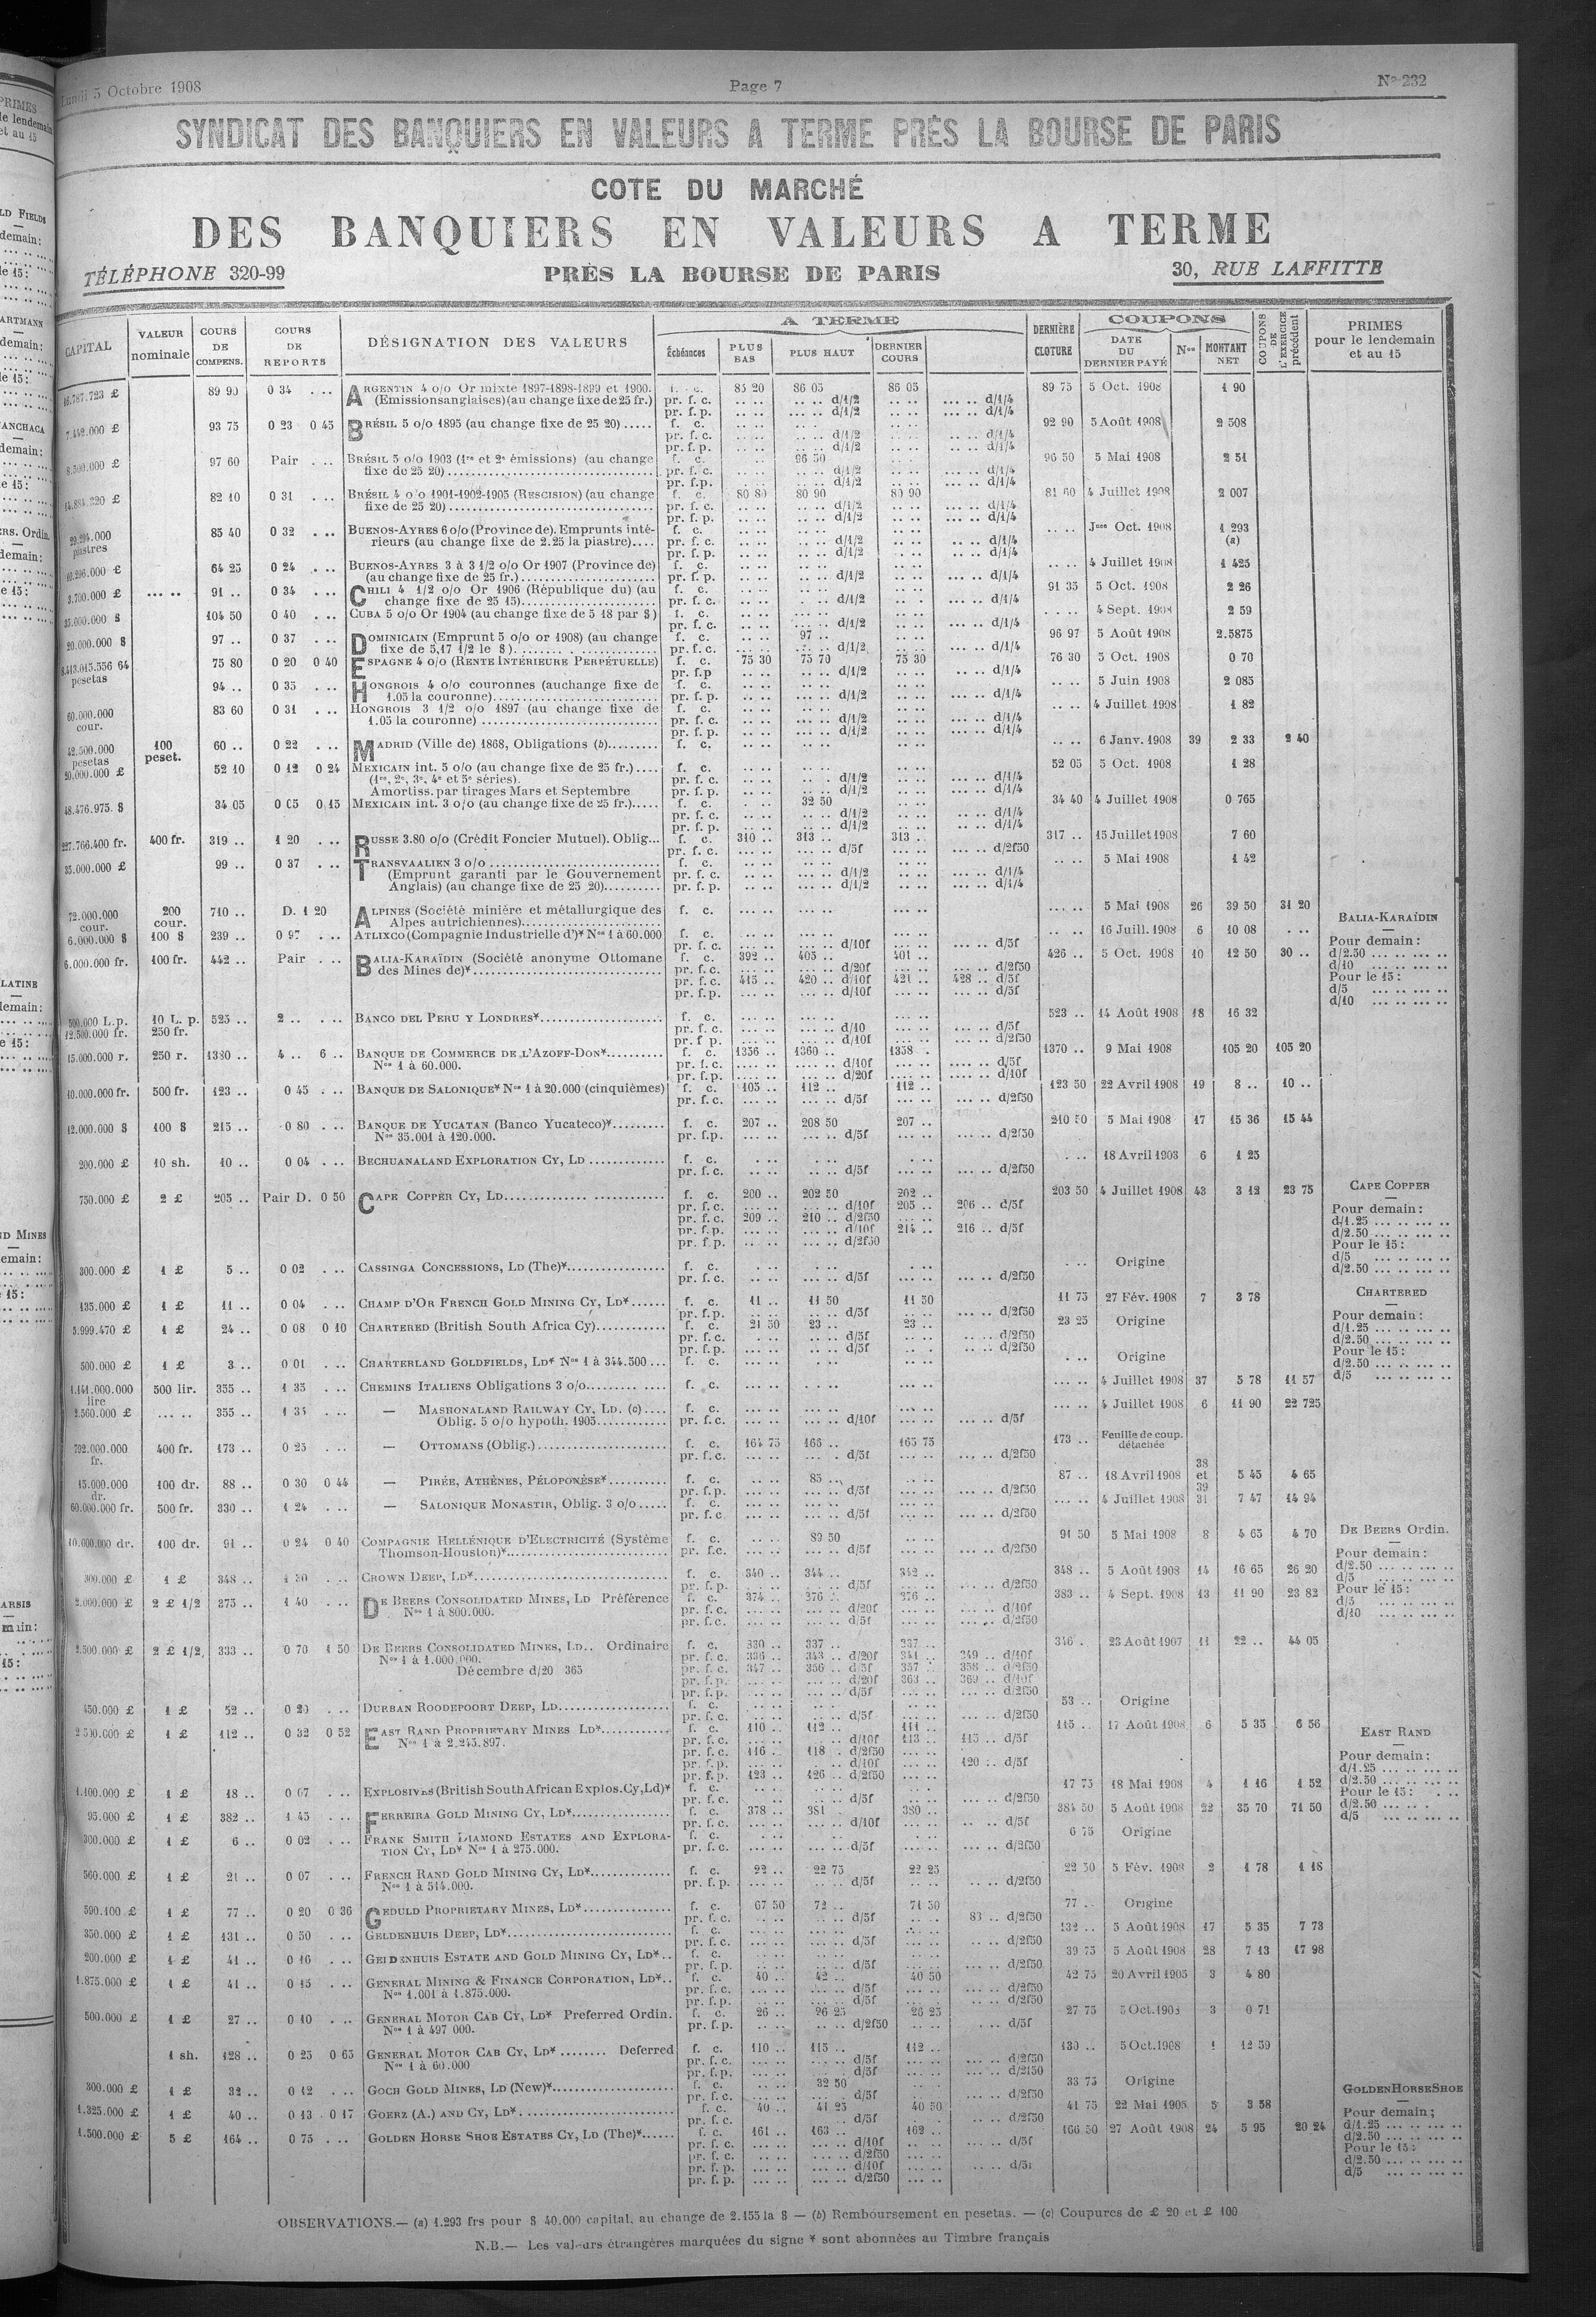 Lundi 5 Octobre 1908 Page 7 No 232
SYNDICAT DES BANQUIERS EN VALEURS A TERME PRÈS LA BOURSE DE PARIS
COTE DU MARCHÉ
DES BANQUIERS EN VALEURS A TERME
TÉLÉPHONE 320-99 PRÈS LA BOURSE DE PARIS 30, RUE LAFFITTE
CAPITAL VALEUR nominale COURS DE COMPENS. COURS DE REPORTS DÉSIGNATION DES VALEURS A TERME Échéances PLUS BAS PLUS HAUT DERNIER COURS DERNIÈRE CLOTURE COUPONS DATE DU DERNIER PAYÉ Nos MONTANT NET COUPONS DE L'EXERCICE précédent PRIMES pour le lendemain et au 15
89 90 0 34 ARGENTIN 4 o/o Or mixte 1897-1898-1899 et 1900. 85 20 86 05 86 05 89 75 5 Oct. 1908 1 90
(Emissions anglaises) (au change fixe de 25 fr.) pr. f. c. d/1/2 d/1/4
pr. f.p. d/1/2 d/1/4
93 75 0 23 0 45 BRÉSIL 5 o/o 1895 (au change fixe de 25 20) f. c. 92 90 5 Août 1908 2 508
97 60 Pair BRÉSIL 5 o/o 1903 (1re et 2e émissions) (au change fixe de 25 20) f. c. 96 50 96 50 5 Mai 1908 2 51
82 10 0 31 BRÉSIL 4 o/o 1901-1902-1905 (RESCISION) (au change fixe de 25 20) f. c. 80 80 80 90 80 90 81 60 4 Juillet 1908 2 007
piastres 85 40 0 32 BUENOS-AYRES 6 o/o (Province de), Emprunts intérieurs (au change fixe de 2.25 la piastre) f. c. Jces Oct. 1908 1 293 (a)
64 25 0 24 BUENOS-AYRES 3 à 3 1/2 o/o Or 1907 (Province de) (au change fixe de 25 fr.) f. c. 4 Juillet 1908 1 425
3.700.000 £ 91 .. 0 34 CHILI 4 1/2 o/o Or 1906 (République du) (au change fixe de 25 15) f. c. 91 35 5 Oct. 1908 2 26
35.000.000 $ 104 50 0 40 CUBA 5 o/o Or 1904 (au change fixe de 5 18 par $) f. c. 4 Sept. 1908 2 59
20.000.000 $ 97 .. 0 37 DOMINICAIN (Emprunt 5 o/o or 1908) (au change fixe de 5,17 1/2 le $) f. c. 97 .. 96 97 5 Août 1908 2.5875
pesetas 75 80 0 20 0 40 ESPAGNE 4 o/o (RENTE INTÉRIEURE PERPÉTUELLE) f. c. 75 30 75 70 75 30 76 30 5 Oct. 1908 0 70
94 .. 0 35 HONGROIS 4 o/o couronnes (au change fixe de 1.05 la couronne) f. c. 5 Juin 1908 2 085
60.000.000 cour. 83 60 0 31 HONGROIS 3 1/2 o/o 1897 (au change fixe de 1.05 la couronne) f. c. 4 Juillet 1908 1 82
42.500.000 pesetas 100 peset. 60 .. 0 22 MADRID (Ville de) 1868, Obligations (b) f. c. 6 Janv. 1908 39 2 33 2 40
20.000.000 £ 52 10 0 12 0 24 MEXICAIN int. 5 o/o (au change fixe de 25 fr.) f. c. 52 05 5 Oct. 1908 1 28
(1re, 2e, 3e, 4e et 5e séries).
Amortiss. par tirages Mars et Septembre
48.476.975. $ 34 05 0 05 0 15 MEXICAIN int. 3 o/o (au change fixe de 25 fr.) f. c. 32 50 34 40 4 Juillet 1908 0 765
227.766.400 fr. 400 fr. 319 .. 1 20 RUSSE 3.80 o/o (Crédit Foncier Mutuel). Oblig. f. c. 310 .. 313 .. 313 .. 317 .. 15 Juillet 1908 7 60
35.000.000 £ 99 .. 0 37 TRANSVAALIEN 3 o/o f. c. 5 Mai 1908 1 42
(Emprunt garanti par le Gouvernement Anglais) (au change fixe de 25 20)
72.000.000 cour. 200 cour. 710 .. D. 1 20 ALPINES (Société minière et métallurgique des Alpes autrichiennes) f. c. 5 Mai 1908 26 39 50 31 20
6.000.000 $ 100 $ 239 .. 0 97 ATLIXCO (Compagnie Industrielle d')* Nos 1 à 60.000 f. c. 16 Juill. 1908 6 10 08
6.000.000 fr. 100 fr. 442 .. Pair BALIA-KARAÏDIN (Société anonyme Ottomane des Mines de)* f. c. 392 .. 405 .. 401 .. 426 .. 5 Oct. 1908 10 12 50 30 ..
pr. f. c. 415 .. 420 .. d/10f 421 .. 428 .. d/5f
BALIA-KARAÏDIN
Pour demain :
d/2.50
d/10
Pour le 15 :
d/5
d/10
500.000 L.p. 12.500.000 fr. 10 L. p. 250 fr. 525 .. 2 .. BANCO DEL PERU Y LONDRES* f. c. 523 .. 14 Août 1908 18 16 32
15.000.000 r. 250 r. 1380 .. 4 .. 6 .. BANQUE DE COMMERCE DE L'AZOFF-DON* Nos 1 à 60.000. f. c. 1356 .. 1360 .. 1358 . 1370 .. 9 Mai 1908 105 20 105 20
10.000.000 fr. 500 fr. 123 .. 0 45 BANQUE DE SALONIQUE* Nos 1 à 20.000 (cinquièmes) f. c. 105 .. 112 .. 112 .. 123 50 22 Avril 1908 19 8 .. 10 ..
12.000.000 $ 100 $ 215 .. 0 80 BANQUE DE YUCATAN (Banco Yucateco)* Nos 35.001 à 120.000. f. c. 207 .. 208 50 207 .. 210 50 5 Mai 1908 17 15 36 15 44
200.000 £ 10 sh. 10 .. 0 04 BECHUANALAND EXPLORATION CY, LD f. c. 18 Avril 1903 6 1 25
750.000 £ 2 £ 205 .. Pair D. 0 50 CAPE COPPER CY, LD f. c. 200 .. 202 50 202 .. 203 50 4 Juillet 1908 43 3 12 23 75
pr. f. c. d/10f 205 .. 206 .. d/5f
pr. f. c. 209 .. 210 .. d/2f50
pr. f.p. d/10f 214 .. 216 .. d/5f
CAPE COPPER
Pour demain :
d/1.25
d/2.50
Pour le 15 :
d/5
d/2.50
300.000 £ 1 £ 5 .. 0 02 CASSINGA CONCESSIONS, LD (The)* f. c. Origine
135.000 £ 1 £ 11 .. 0 04 CHAMP D'OR FRENCH GOLD MINING CY, LD* f. c. 11 .. 11 50 11 50 11 75 27 Fév. 1908 7 3 78
5.999.470 £ 1 £ 24 .. 0 08 0 10 CHARTERED (British South Africa Cy) f. c. 21 50 23 .. 23 .. 23 25 Origine
500.000 £ 1 £ 3 .. 0 01 CHARTERLAND GOLDFIELDS, LD* Nos 1 à 344.500 f. c. Origine
CHARTERED
Pour demain :
d/1.25
d/2.50
Pour le 15 :
d/2.50
d/5
1.141.000.000 lire 500 lir. 355 .. 1 35 CHEMINS ITALIENS Obligations 3 o/o f. c. 4 Juillet 1908 37 5 78 11 57
2.560.000 £ 355 .. 1 35 — MASHONALAND RAILWAY CY, LD. (c) Oblig. 5 o/o hypoth. 1905 f. c. 4 Juillet 1908 6 11 90 22 725
702.000.000 fr. 400 fr. 173 .. 0 25 — OTTOMANS (Oblig.) f. c. 164 75 166 .. 165 75 173 .. Feuille de coup. détachée
15.000.000 dr. 100 dr. 88 .. 0 30 0 44 — PIRÉE, ATHÈNES, PÉLOPONÈSE* f. c. 85 .. 87 .. 18 Avril 1908 38 et 39 5 45 4 65
60.000.000 fr. 500 fr. 330 .. 1 24 — SALONIQUE MONASTIR, Oblig. 3 o/o f. c. 4 Juillet 1908 31 7 47 14 94
10.000.000 dr. 100 dr. 91 .. 0 24 0 40 COMPAGNIE HELLÉNIQUE D'ELECTRICITÉ (Système Thomson-Houston)* f. c. 89 50 91 50 5 Mai 1908 8 4 65 4 70
300.000 £ 1 £ 348 .. CROWN DEEP, LD* f. c. 340 .. 344 .. 342 .. 348 .. 5 Août 1908 14 16 65 26 20
2.000.000 £ 2 £ 1/2 375 .. 1 40 DE BEERS CONSOLIDATED MINES, LD Préférence Nos 1 à 800.000. f. c. 374 .. 376 .. 376 .. 383 .. 4 Sept. 1908 13 11 90 23 82
DE BEERS Ordin.
Pour demain :
d/2.50
d/5
Pour le 15 :
d/5
d/10
2.500.000 £ 2 £ 1/2 333 .. 0 70 1 50 DE BEERS CONSOLIDATED MINES, LD.. Ordinaire Nos 1 à 1.000.000. f. c. 330 .. 337 .. 337 .. 346 . 23 Août 1907 11 22 .. 44 05
pr. f. c. 336 .. 343 .. d/20f 341 .. 349 .. d/10f
Décembre d/20 365 pr. f. c. 347 .. 356 .. d/5f 357 .. 358 .. d/2f50
pr. f.p. d/20f 363 .. 369 .. d/10f
450.000 £ 1 £ 52 .. 0 20 DURBAN ROODEPOORT DEEP, LD f. c. 53 .. Origine
1 £ 112 .. 0 32 0 52 EAST RAND PROPRIETARY MINES LD* Nos 1 à 2.245.897. f. c. 110 .. 112 .. 111 .. 115 .. 17 Août 1908 6 5 35 6 56
pr. f. c. d/10f 113 .. 115 .. d/5f
pr. f. c. 116 .. 118 . d/2f50
pr. f.p. d/10f 120 .. d/5f
pr. f.p. 123 .. 126 .. d/2f50
EAST RAND
Pour demain :
d/1.25
d/2.50
Pour le 15 :
d/2.50
d/5
1.100.000 £ 1 £ 18 .. 0 07 EXPLOSIVES (British South African Explos. Cy, Ld)* f. c. 17 75 18 Mai 1908 4 1 16 1 52
95.000 £ 1 £ 382 .. 1 45 FERREIRA GOLD MINING CY, LD* f. c. 378 .. 381 . 380 .. 384 50 5 Août 1908 22 35 70 71 50
300.000 £ 1 £ 6 .. 0 02 FRANK SMITH DIAMOND ESTATES AND EXPLORATION CY, LD* Nos 1 à 275.000. f. c. 6 75 Origine
560.000 £ 1 £ 21 .. 0 07 FRENCH RAND GOLD MINING CY, LD* Nos 1 à 514.000. f. c. 22 .. 22 75 22 25 22 50 5 Fév. 1908 2 1 78 1 18
590.100 £ 1 £ 77 .. 0 20 0 36 GEDULD PROPRIETARY MINES, LD* f. c. 67 50 72 .. 71 50 77 .. Origine
pr. f. c. d/5f 83 .. d/2f50
350.000 £ 1 £ 131 .. 0 50 GELDENHUIS DEEP, LD* f. c. 132 .. 5 Août 1908 17 5 35 7 73
200.000 £ 1 £ 41 .. 0 16 GELDENHUIS ESTATE AND GOLD MINING CY, LD* f. c. 39 75 5 Août 1908 28 7 13 17 98
1.875.000 £ 1 £ 41 .. 0 15 GENERAL MINING & FINANCE CORPORATION, LD* Nos 1.001 à 1.875.000. f. c. 40 .. 42 .. 40 50 42 75 20 Avril 1905 3 4 80
500.000 £ 1 £ 27 .. 0 10 GENERAL MOTOR CAB CY, LD* Preferred Ordin. Nos 1 à 497 000. f. c. 26 .. 26 25 26 25 27 75 5 Oct. 3 0 71
1 sh. 128 .. 0 25 0 65 GENERAL MOTOR CAB CY, LD* Deferred Nos 1 à 60.000 f. c. 110 .. 115 .. 112 .. 130 .. 5 Oct. 1908 1 12 59
300.000 £ 1 £ 32 .. 0 12 GOCH GOLD MINES, LD (New)* f. c. 32 50 33 75 Origine
1.325.000 £ 1 £ 40 .. 0 13 0 17 GOERZ (A.) AND CY, LD* f. c. 40 .. 41 25 40 50 41 75 22 Mai 1905 5 3 58
1.500.000 £ 5 £ 164 .. 0 75 GOLDEN HORSE SHOE ESTATES CY, LD (The)* f. c. 161 .. 163 .. 162 .. 166 50 27 Août 1908 24 5 95 20 24
GOLDEN HORSE SHOE
Pour demain ;
d/1.25
d/2.50
Pour le 15 :
d/2.50
d/5
OBSERVATIONS.— (a) 1.293 frs pour $ 40.000 capital, au change de 2.155 la $ — (b) Remboursement en pesetas. — (c) Coupures de £ 20 et £ 100
N.B.— Les valeurs étrangères marquées du signe * sont abonnées au Timbre français